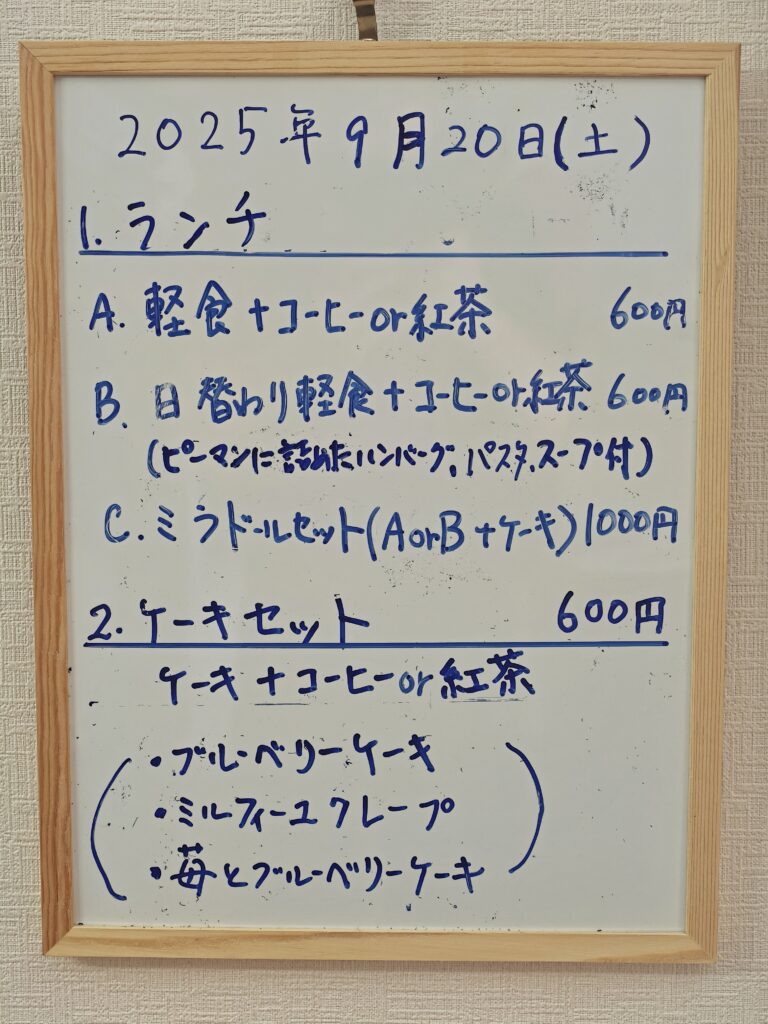 2025年9月20日(土)
1.ランチ
A.軽食+コーヒーor紅茶 600円
B.日替わり軽食+コーヒーor紅茶 600円
(ピーマンに詰めたハンバーグ,パスタ,スープ付)
C.ミラドールセット(AorB+ケーキ)1000円
2.ケーキセット 600円
ケーキ+コーヒーor紅茶
・ブルーベリーケーキ
・ミルフィーユクレープ
・苺とブルーベリーケーキ